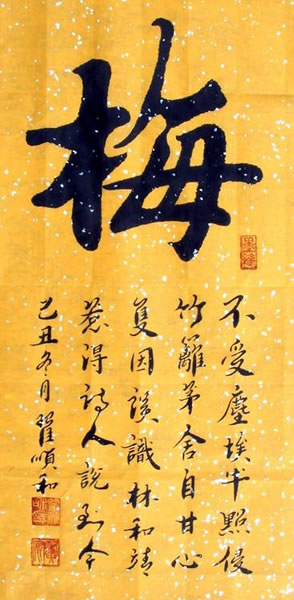 梅
不受塵埃半點侵
竹籬茅舍自甘心
隻因誤識林和靖
惹得詩人說到今
己丑冬月 翟順和